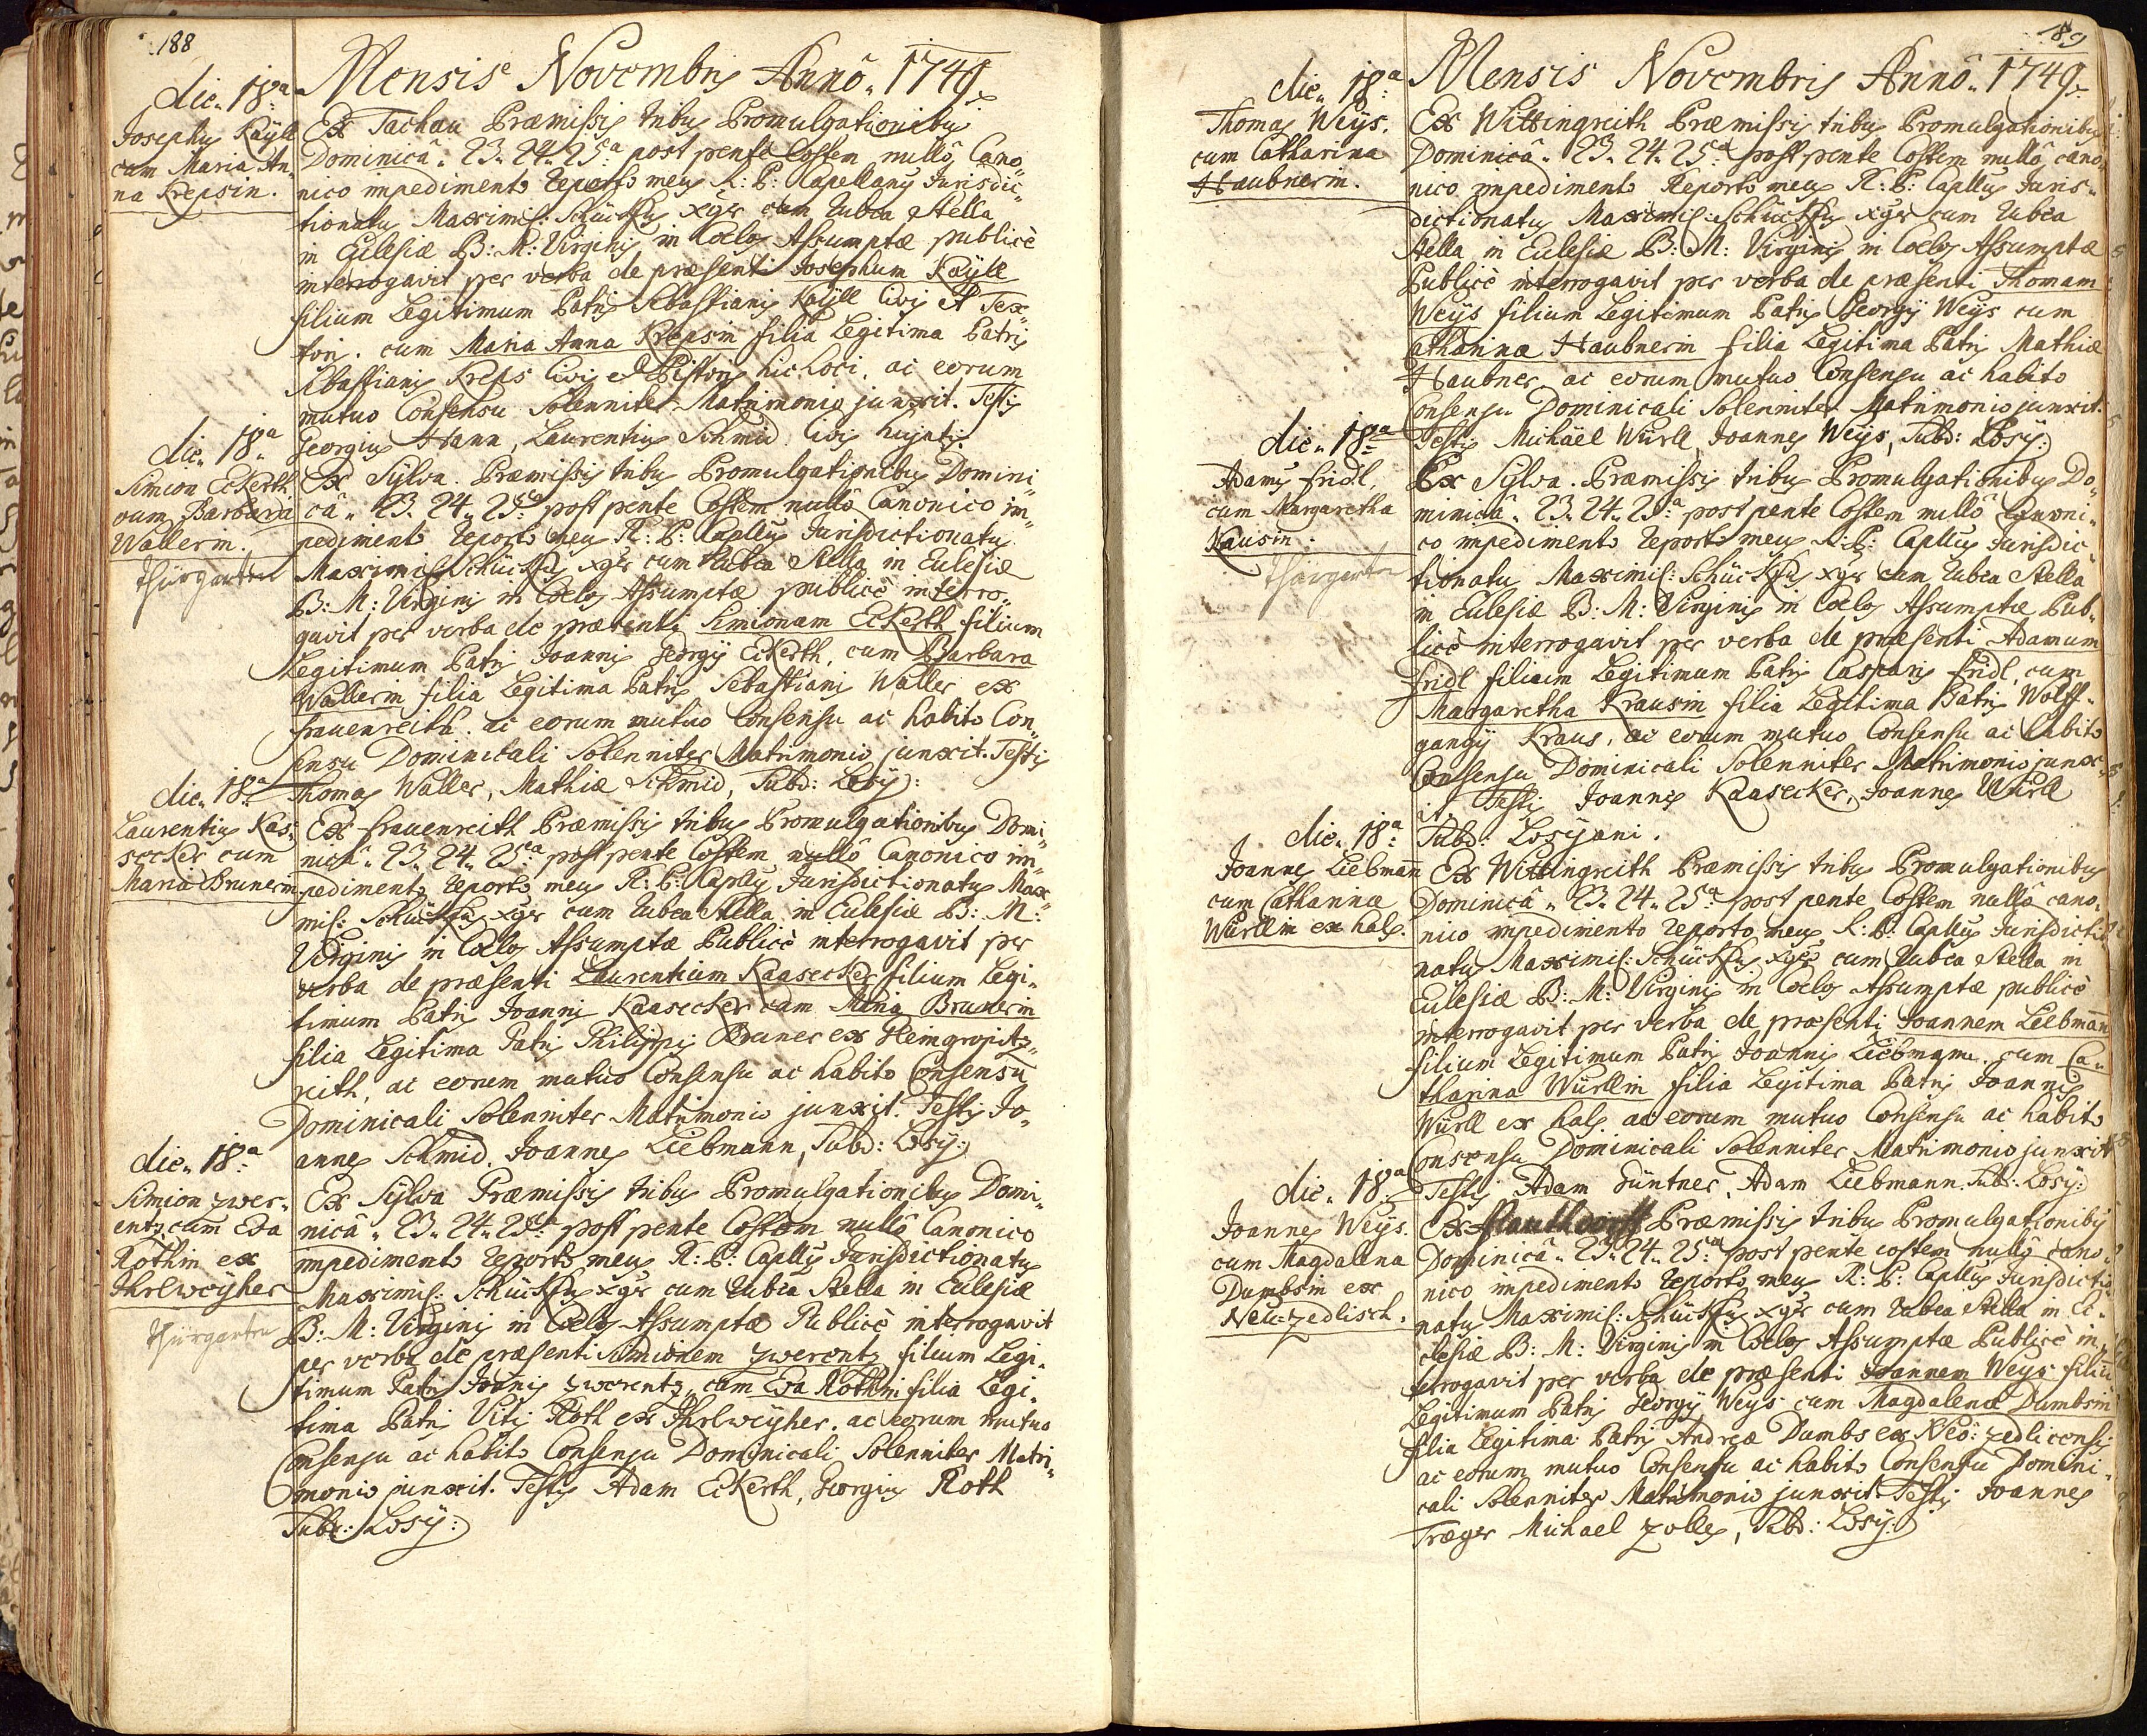 188
Mensis Novembris Annô. 1749.
die. 18.a
Josephus Käyll
cum Maria An-
na Krepsin.
Ex Tachau Præmissis tribus Promulgationibus
Dominicâ. 23. 24. 25.a post pente Costem nullô Cano„
nico impedimento reperto meus R: P: Capellanus Jurisdic„
tionatus Maximil: Schückhs xger cum rubea Stella
in Eclesiæ B: M: Virginis in Coelos Assumptæ publicè
interrogavit per verba de præsenti Josephum Käyll
filium Legitimum Patris Sebastiani Käyll Civis et Tex„
toris. cum Maria Anna Krepsin filia Legitima Patris
Sebastiani Kreps Civis et Pistoris hic Loci, ac eorum
mutuo Consensu Solenniter Matrimonio junxit. Testis
Georgius Hann, Laurentius Schmid Civis hujatis.
die. 18.a
Simion Eckerth
cum Barbara
Wallerin.
Thürgarten
Ex Sylva. Præmissis tribus Promulgationibus Domini„
câ. 23. 24. 25.a post pente Costem nullô Canonico im„
pedimento reperto meus R: P: Capllus Jurisdictionatus
Maximil: Schückhs xger cum rubea Stella in Eclesiæ
B: M: Virginis in Coelos Assumptæ publicè interro„
gavit per verba de præsenti Simionam Eckerth filium
Legitimum Patris Joannis Georgij Eckerth, cum Barbara
Wallerin filia Legitima Patris Sebastiani Waller ex
frauenreith. ac eorum mutuo Consensu ac habito Con„
sensu Dominicali Solenniter Matrimonio junxit. Testis
Thomas Waller, Mathiæ Schmid, Subd: Losÿ:
die. 18.a
Laurentius Kas:
secker cum
Maria Brunerin.
Ex frauenreith Præmissis tribus Promulgationibus Domi„
nicâ. 23. 24. 25.a post pente Costem nullô Canonico im„
pedimento reperto meus R: P: Capllus Jurisdictionatus Max„
mil: Schückhs xger cum rubea Stella in Eclesiæ B: M:
Virginis in Coelos Assumptæ Publicè interrogavit per
verba de præsenti Laurentium Kaasecker filium Legi„
timum Patris Joannis Kaasecker cum Maria Brunerin
filia Legitima Patris Philippi Bruner ex Heimgropitz„
reith, ac eorum mutuo Consensu ac habito Consensu
Dominicali Solenniter Matrimonio junxit. Testis Jo„
annes Schmid. Joannes Liebmann, Subd: Losÿ:
die. 18.a
Simion zwer„
entz cum Eva
Rothin ex
Thrlweÿher
Thürgarten
Ex Sylva Præmissis tribus Promulgationibus Domi„
nicâ. 23. 24. 25.a post pente Costem nullô Canonico
impedimento reperto meus R: P: Capllus Jurisdictionatus
Maximil: Schückhs xger cum rubea Stella in Eclesiæ
B: M: Virginis in Coelos Assumptæ Publicè interrogavit
per verba de præsenti Simionem zwerentz filium Legi„
timum Patris Joannis zwerentz, cum Eva Rothin filia Legi„
tima Patris Viti Roth ex Thrlweÿher. ac eorum mutuo
Consensu ac habito Consensu Dominicali Solenniter Matri„
monio junxit. Testis Adam Eckerth, Georgius Roth
Subd: Losÿ:
189
Mensis Novembris Annô. 1749.
die. 18.a
Thomas Weÿs.
cum Catharina
Haubnerin.
Ex Wittingreith Præmissis tribus Promulgationibus
Dominicâ. 23. 24. 25.a post pente Costem nullô cano„
nico impedimento Reperto meus R: P: Capllus Juris„
dictionatus Maximil: Schückhs xger cum rubea
Stella in Eclesiæ B: M: Virginis in Coelos Assumptæ
Publicè interrogavit per verba de præsenti Thomam
Weÿs filium Legitimum Patris Georgÿ Weÿs cum
Catharinæ Haubnerin filia Legitima Patris Mathiæ
Haubner ac eorum mutuo Consensu ac habito
Consensu Dominicali Solenniter Matrimonio junxit.
Testis Michäel Würll, Joannes Weÿs, Subd: Losÿ:
die. 18.a
Adams fridl,
cum Margaretha
Kausin.
Thürgarten
Ex Sylva. Præmissis tribus Promulgationibus Do„
minicâ. 23. 24. 25.a post pente Costem nullô Canoni„
co impedimento reperto meus R: P: Capllus Jurisdic„
tionatus Maximil: Schückhs xger cum rubea Stella
in Eclesiæ B: M: Virginis in Coelos Assumptæ Pub„
licè interrogavit per verba de præsenti Adamum
fridl filium Legitimum Patris Casparis fridl, cum
Margaretha Krausin filia Legitima Patris Wolff„
gangÿ Kraus, ac eorum mutuo Consensu ac habito
Consensu Dominicali Solenniter Matrimonio junx„
it. Testis Joannes Kaasecker, Joannes Würll
Subd: Losÿani.
die. 18.a
Joannes Liebmañ
cum Catharinæ
Würllin ex hals.
Ex Wittingreith Præmissis tribus Promulgationibus
Dominicâ. 23. 24. 25.a post pente Costem nullô cano„
nico impedimento reperto meus R: P: Capllus Jurisdictio
natus Maximil: Schückhs xger cum rubea Stella in
Eclesiæ B: M: Virginis in Coelos Assumptæ publicè
interrogavit per verba de præsenti Joannem Liebmañ
filium Legitimum Patris Joannis Liebmann. cum Ca„
tharina Würllin filia Legitima Patris Joannis
Würll ex hals. ac eorum mutuo Consensu ac habito
Consensu Dominicali Solenniter Matrimonio junxit
Testis Adam Güntner, Adam Liebmann. Subd: Losÿ:
die. 18.a
Joannes Weÿs.
cum Magdalena
Dumbsin ex
Neu:zedlisch.
Ex Præmissis tribus Promulgationibus
Dominicâ. 23. 24. 25.a post pente costem nullô cano„
nico impedimento reperto meus R: P: Capllus Jurisdictio
natus Maximil: Schückhs xger cum rubea Stella in Ec„
clesiæ B: M: Virginis in Coelos Assumptæ Publicè in„
terrogavit per verba de præsenti Joannem Weÿs filiũ
Legitimum Patris Georgÿ Weÿs cum Magdalenæ Dumbsin
filia Legitima Patris Andreæ Dumbs ex Neo: zedlicensi
ac eorum mutuo Consensu ac habito Consensu Domini„
cali Solenniter Matrimonio junxit. Testis Joannes
Træger Michael zolles, Subd: Losÿ: